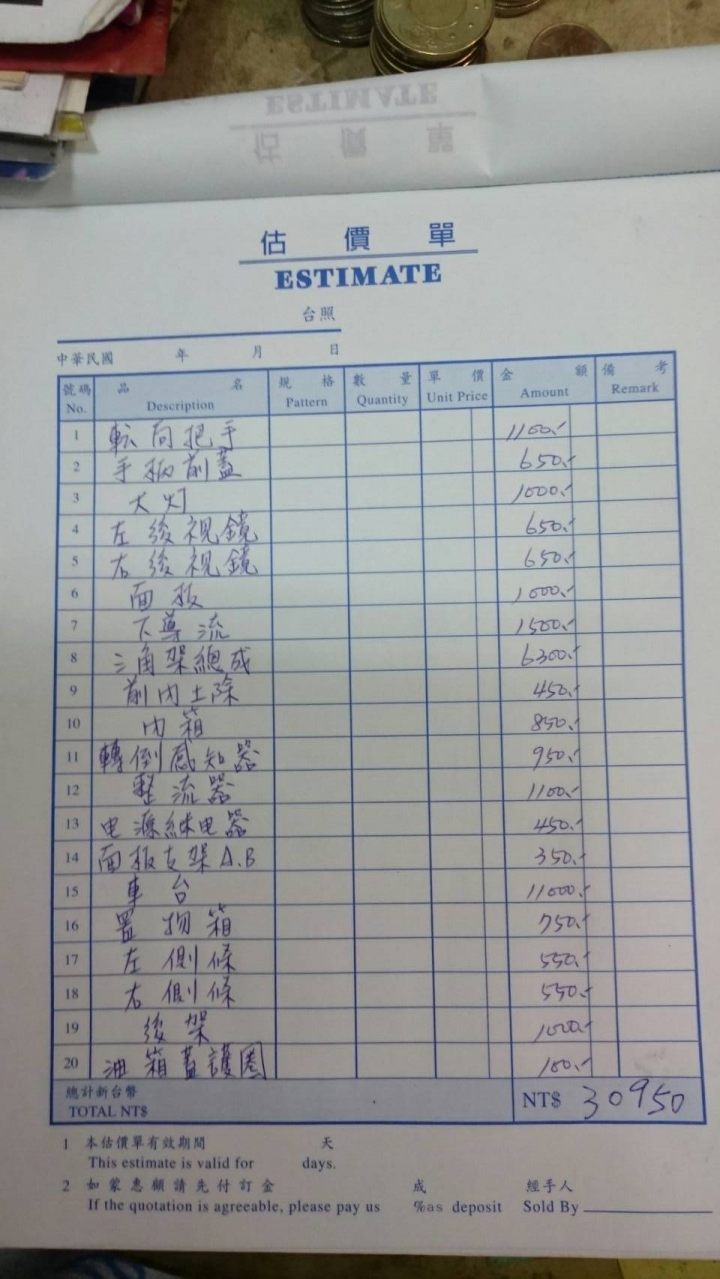 ESTIMATE
估價單
估價單
ESTIMATE
台照
中華民國 年 月 日
號碼 品名 規格 數量 單價 金額 備考
No. Description Pattern Quantity Unit Price Amount Remark
1 転向把手 1100.-
2 手柄前蓋 650.-
3 大灯 1000.-
4 左後視鏡 650.-
5 右後視鏡 650.-
6 面板 1000.-
7 下導流 1500.-
8 三角架總成 6300.-
9 前內土除 450.-
10 內箱 850.-
11 轉倒感知器 950.-
12 整流器 1100.-
13 电源継电器 450.-
14 面板支架A.B 350.-
15 車台 11000.-
16 置物箱 750.-
17 左側條 550.-
18 右側條 550.-
19 後架 1000.-
20 油箱蓋護圈 100.-
總計新台幣
TOTAL NT$ NT$ 30950
1 本估價單有效期間 天
This estimate is valid for days.
2 如蒙惠顧請先付訂金 成 經手人
If the quotation is agreeable, please pay us %as deposit Sold By